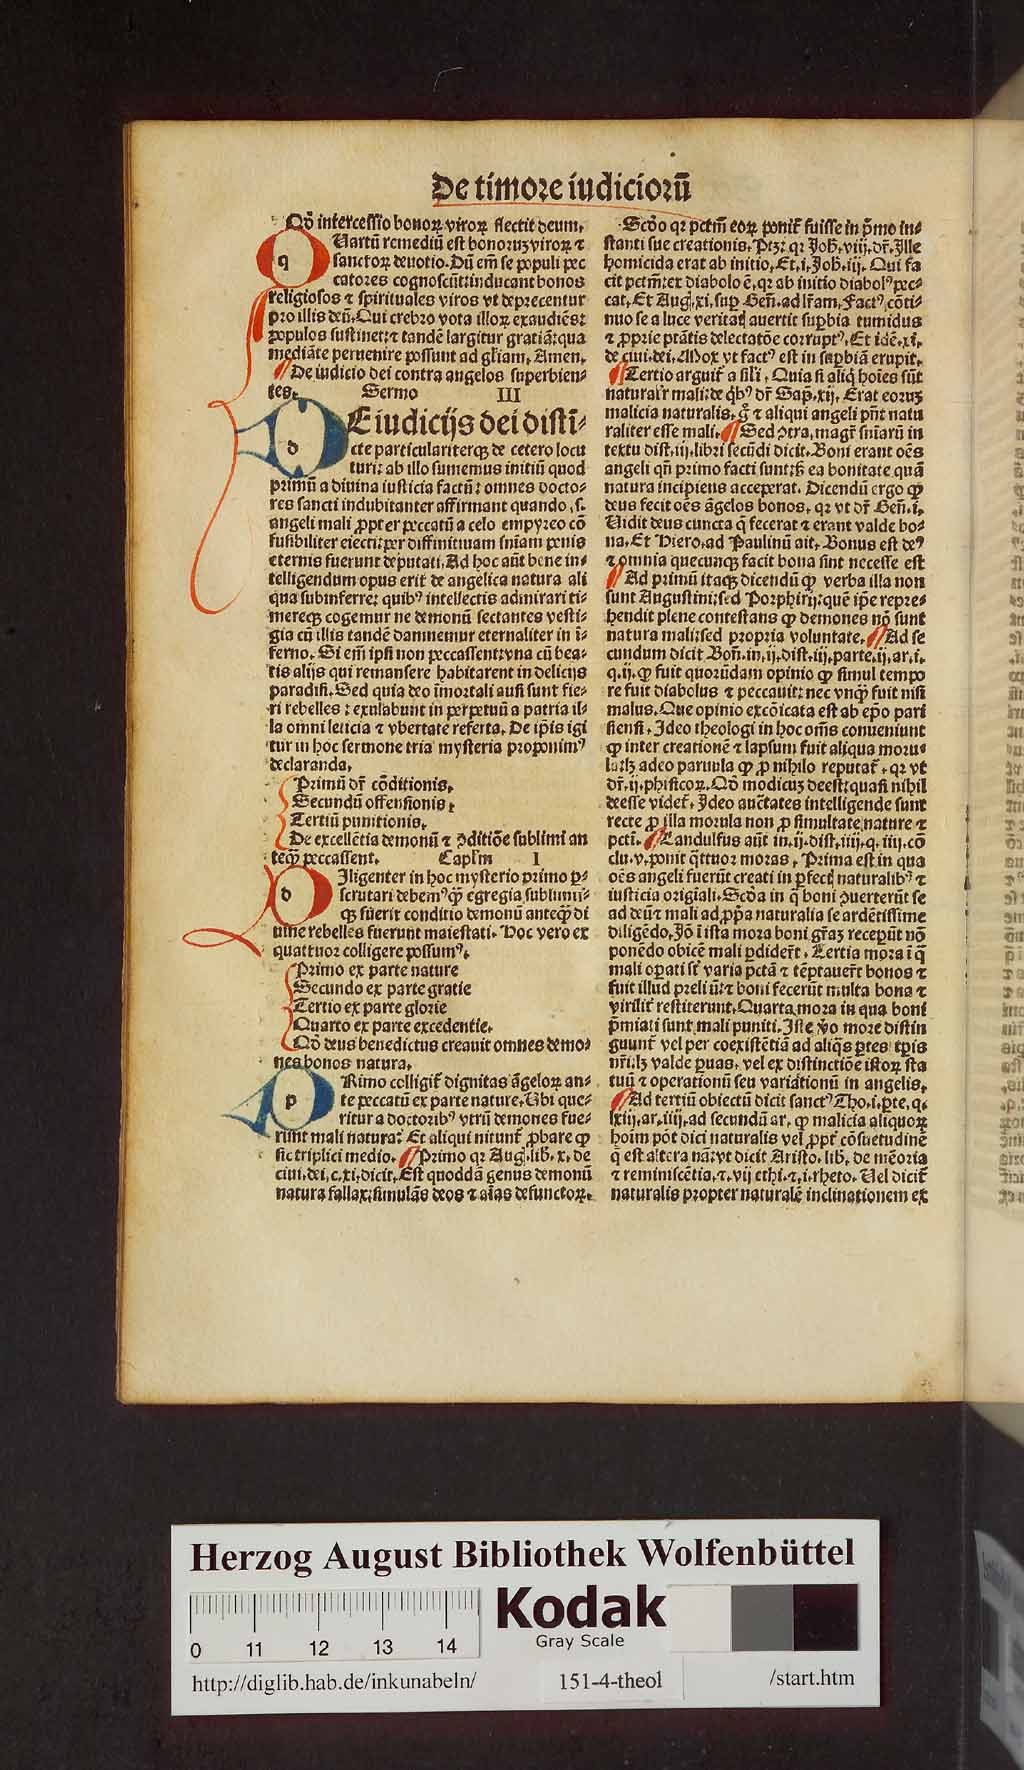 De timore iudiciorū
Qō intercessio bonorꝝ virorꝝ flectit deum.
qUartū remediū est bonoruʒ virorꝝ ⁊
sanctorꝝ deuotio. Dū em̄ se populi pec
catores cognoscūt: inducant bonos
religiosos ⁊ spirituales viros vt deprecentur
pro illis deū. Qui crebro vota illorꝝ exaudiēs:
populos sustinet: ⁊ tandē largitur gratiā: qua
mediāte peruenire possunt ad gl̄iam. Amen.
De iudicio dei contra angelos superbien⸗
tes. Sermo III
dE iudicijs dei disti̅⸗
cte particulariterqꝫ de cetero locu
turi: ab illo sumemus initiū quod
primū a diuina iusticia factū: omnes docto⸗
res sancti indubitanter affirmant quando .s.
angeli mali ꝓpter peccatū a celo empyreo cō
fusibiliter eiecti: per diffinitiuam sn̄iam penis
eternis fuerunt deputati. Ad hoc aūt bene in⸗
telligendum opus erit de angelica natura ali
qua subinferre: quibꝰ intellectis admirari ti⸗
mereqꝫ cogemur ne demonū sectantes vesti⸗
gia cū illis tandē damnemur eternaliter in ī⸗
ferno. Si em̄ ipsi non peccassent: vna cū bea⸗
tis alijs qui remansere habitarent in delicijs
paradisi. Sed quia deo īmortali ausi sunt fie⸗
ri rebelles: exulabunt in perpetuū a patria il⸗
la omni leticia ⁊ vbertate referta. De ip̄is igi
tur in hoc sermone tria mysteria proponimꝰ
declaranda.
Primū dr̄ cōditionis.
Secundū offensionis.
Tertiū punitionis.
De excellētia demonū ⁊ ꝯditiōe sublimi an
teqꝫ peccassent. Caplm̄ I
dIligenter in hoc mysterio primo p̄⸗
scrutari debemꝰ qꝫ egregia sublimi⸗
qꝫ fuerit conditio demonū anteqꝫ di
uine rebelles fuerunt maiestati. Hoc vero ex
quattuor colligere possumꝰ.
Primo ex parte nature
Secundo ex parte gratie
Tertio ex parte glorie
Quarto ex parte excedentie.
Qō deus benedictus creauit omnes demo⸗
nes bonos natura.
pRimo colligit̄ dignitas āgelorꝝ an⸗
te peccatū ex parte nature. Vbi que⸗
ritur a doctoribꝰ vtrū demones fue⸗
runt mali natura? Et aliqui nitunt̄ ꝓbare ꝙ
sic triplici medio. Primo qꝛ Aug. lib. x. de
ciui. dei. c. xi. dicit. Est quoddā genus demonū
natura fallax: simulās deos ⁊ aīas defunctorꝝ.
Scd̄o qꝛ pctm̄ eorꝝ ponit̄ fuisse in p̄mo in⸗
stanti sue creationis. Ptꝫ: qꝛ Joh̄. viij. dr̄. Ille
homicida erat ab initio. Et .i. Joh̄. iij. Qui fa
cit pctm̄: ex diabolo ē. qꝛ ab initio diabolꝰ pec⸗
cat. Et Aug. xi. sup̄ Gen̄. ad lr̄am. Factꝰ cōti⸗
nuo se a luce veritatꝭ auertit suꝑbia tumidus
⁊ ꝓprie ptātis delectatōe corruptꝰ. Et idē. xi.
de ciui. dei. Mox vt factꝰ est in suꝑbiā erupit.
Tertio arguit̄ a sil̄i. Quia si aliq̄ hoīes sūt
naturalr̄ mali: de q̄bꝰ dr̄ Sap̄. xij. Erat eoruʒ
malicia naturalis. g̊ ⁊ aliqui angeli pn̄t natu
raliter esse mali. Sed ꝯtra. magr̄ sn̄iarū in
textu dist. iij. libri secūdi dicit. Boni erant oēs
angeli qn̄ primo facti sunt: sꝫ ea bonitate quā
natura incipiens acceperat. Dicendū ergo ꝙ
deus fecit oēs āgelos bonos. qꝛ vt dr̄ Gen̄. i.
Vidit deus cuncta q̄ fecerat ⁊ erant valde bo⸗
na. Et Hiero. ad Paulinū ait. Bonus est deꝰ
⁊ omnia quecunqꝫ facit bona sint necesse est
Ad primū itaqꝫ dicendū ꝙ verba illa non
sunt Augustini: sed Porphirij: quē ip̄e repre⸗
hendit plene contestans ꝙ demones nō sunt
natura mali: sed propria voluntate. Ad se
cundum dicit Bon̄. in. ij. dist. iij. parte. ij. ar. i.
q. ij. ꝙ fuit quorūdam opinio ꝙ simul tempo
re fuit diabolus ⁊ peccauit: nec vnqꝫ fuit nisi
malus. Que opinio excōicata est ab ep̄o pari
siensi. Ideo theologi in hoc om̄s conueniunt
ꝙ inter creationē ⁊ lapsum fuit aliqua moru⸗
la: lꝫ adeo paruula ꝙ ꝓ nihilo reputat̄. qꝛ vt
dr̄. ij. phisicorꝝ. Qō modicuʒ deest: quasi nihil
deesse videt̄. Ideo auctates intelligende sunt
recte ꝓ illa morula non ꝓ simultate nature ⁊
pcti. Landulfus aūt in. ij. dist. iiij. q. iiij. co
clu. v. ponit q̄ttuor moras. Prima est in qua
oēs angeli fuerūt creati in ꝑfectꝭ naturalibꝰ ⁊
iusticia origiali. Scd̄a in q̄ boni ꝯuerterūt se
ad deū ⁊ mali ad ꝓp̄a naturalia se ardētissime
diligēdo. Jō ī ista mora boni gr̄aꝫ receperūt nō
ponēdo obicē mali ꝑdider̄t. Tertia mora ī q̄
mali oꝑati st̄ varia pctā ⁊ tēptauer̄t bonos ⁊
fuit illud preliū: ⁊ boni fecerūt multa bona ⁊
virilit̄ restiterunt. Quarta mora in qua boni
p̄miati sunt mali puniti. Iste v̄o more distin
guunt̄ vel per coexistētiā ad aliq̄s ꝑtes tꝑis
nr̄i: lꝫ valde ꝑuas. vel ex distinctiōe istorꝝ sta
tuū ⁊ operationū seu variationū in angelis.
Ad tertiū obiectū dicit sanctꝰ Tho. i. ꝑte. q.
lxiij. ar. iiij. ad secundū ar. ꝙ malicia aliquorꝝ
hoīm pōt dici naturalis vel ꝓpt̄ cōsuetudinē
q̄ est altera nā: vt dicit Aristo. lib. de mēoria
⁊ reminiscētia. ⁊. vij ethi. ⁊. i. rheto. Vel dicit̄
naturalis propter naturalē inclinationem ex
Herzog August Bibliothek Wolfenbüttel
0 11 12 13 14
Kodak
Gray Scale
http://diglib.hab.de/inkunabeln/ 151-4-theol /start.htm